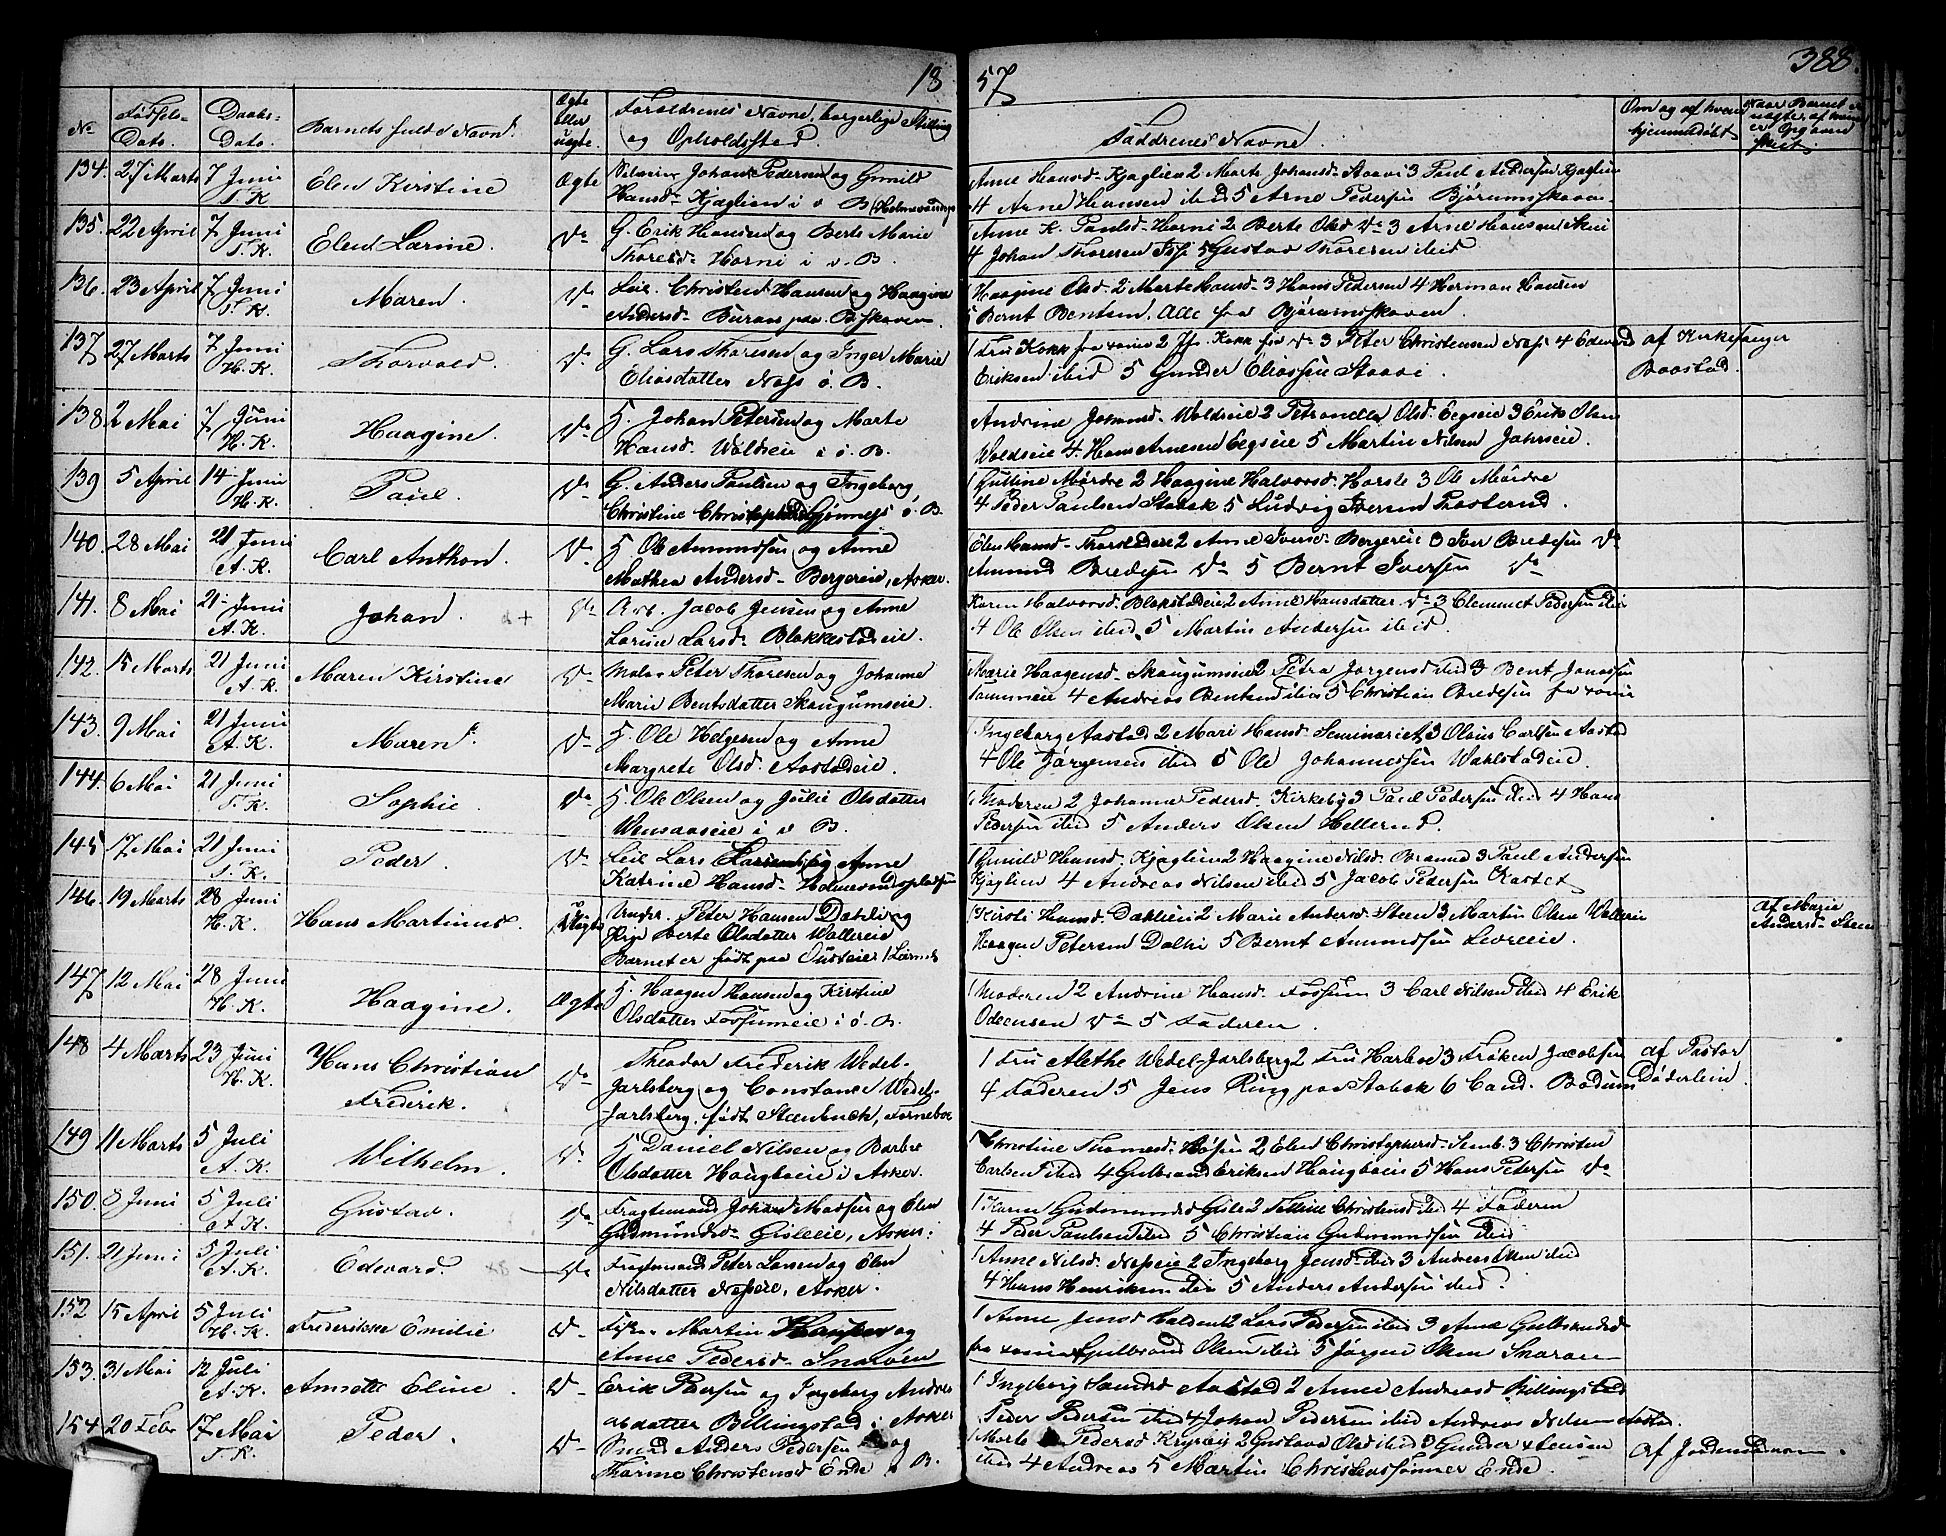 18
57
388.
No
Fødsels-
Dato.
Daabs-
Dato.
Barnets fulde Navn.
Ægte
eller
uægte.
Forældrenes Navne, borgerlige Stilling
og Opholdsted.
Faddrenes Navne.
Om og af hvem
hjemmedøbt
134. 27 Marts 7 Juni T. K. Elen Kirstine Ægte Johan Pedersen og Gunild
Hansd. Kjaglien i v B.
Anne Hansd. Kjaglien 2 Marte Johansd. Staavi 3 Paul Andersen Kjaglien
4 Arne Hansen ibid 5 Arne Pedersen Bjørumsskoven
135. 22 April 7 Juni T. K. Elen Larine. Do G. Erik Hansen og Berte Marie
Thoresd. Horni i v. B.
Anne K. Paulsd. Horni 2 Berte Olsd Do 3 Arne Hansen Skui
4 Johan Thoresen 5 Gustav Thoresen ibid
136. 23 April 7 Juni T. K. Maren. Do Lei. Christen Hansen og Haagine
Andersd. Buraas paa B.skoven
1 Haagine Olsd. 2 Marte Hansd. 3 Hans Pedersen 4 Herman Hansen
5 Bernt Bentsen. Alle fra Bjørumsskoven.
137 27 Marts 7 Juni H. K. Thorvald. Do G. Lars Thoresen og Inger Marie
Eliasdatter Næss ø. B.
1 Fru Kokk fra Xania 2 Kokk fra Do 3 Peter Christensen Næs 4 Edevard
Eriksen ibid 5 Gunder Eliassen Staavi.
af Kirkesanger
Baastad.
138 2 Mai 7 Juni H. K. Haagine. Do H. Johan Petersen og Marte
Hansd. Woldseie i ø. B.
Andrine Johannesd. Woldseie 2 Petronelle Olsd. Eegseie 3 Erik Olsen
Woldseie 4 Hans Arnesen Eegseie 5 Martin Nilsen Jahrseie.
139 5 April 14 Juni H. K. Paul. Do G. Anders Paulsen og Ingeborg
Christine Christophersd Gjønnes ø. B.
1 Guttine Mørdre 2 Haagine Halvorsd. Horsle 3 Ole Mørdre
4 Peder Paulsen Stabæk 5 Ludvig Iversen Prosterud.
140. 28 Mai 21 Juni A. K. Carl Anthon. Do H. Ole Amundsen og Anne
Mathea Andersd. Bergereie, Asker.
Elen Hansd. 2 Anne Iversd. Bergereie 3 Iver Bredesen Do
Amund Bredesen Do 5 Bernt Iversen Do
141. 8 Mai 21 Juni A. K. Johan. Do Arb. Jacob Jensen og Anne
Larine Larsd. Blakkestadeie.
Karen Halvorsd. Blakstadeie 2 Anne Hansdatter Do 3 Clemmet Pedersen ibid
4 Ole Olsen ibid 5 Martin Andersen ibid.
142. 15 Marts 21 Juni A. K. Maren Kirstine Do Maler Peter Thoresen og Johanne
Marie Bentsdatter Skaugumseie.
1 Marie Haagensd. Skaugumseie 2 Petra Jørgensd ibid 3 Bent Jonassen
4 Andreas Bentsen ibid 5 Christian Bredesen fra Xania
143. 9 Mai 21 Juni A. K. Maren. Do H. Ole Helgesen og Anne
Margrete Olsd. Aastadeie.
1 Ingeborg Aastad 2 Mari Hansd. Seminariet 3 Olaus Carlsen Aastad
4 Ole Jørgensen ibid 5 Ole Johannessen Wahlstadeie.
144. 6 Mai 21 Juni T. K. Sophie. Do H. Ole Olsen og Julie Olsdatter
Wensaaseie i v B.
1 Moderen 2 Johanne Pedersd. Kirkeby 3 Paul Pedersen ibid 4 Hans
Pedersen ibid 5 Anders Olsen Hellerud.
145 17 Mai 21 Juni T. K. Peder. Do Lei Lars Larsen og Anne
Katrine Hansd. Holmevandspladsen
1 Gunild Hansd. Kjaglien 2 Haagine Nilsd. Brænna 3 Paul Andersen
Kjaglien 4 Andreas Nilsen ibid 5 Jacob Pedersen
146. 19 Marts 28 Juni H. K. Hans Martinus. Uægte Ungkr. Peter Hansen Dæhli og
Pige Berte Olsdatter Wallereie
Barnet er født paa
1 Kirsti Hansd. Dæhlieie 2 Marie Andersd. Steen 3 Martin Olsen Wallereie
Haagen Petersen Dælhi 5 Bernt Amundsen Levreeie.
af Marie
Andersd. Steen
147 12 Mai 28 Juni H. K. Haagine. Ægte H. Haagen Hansen og Kirstine
Olsdatter Fossumeie i ø. B.
1 Moderen 2 Andrine Hansd. Fossum 3 Carl Nilsen ibid 4 Erik
Odeensen Do 5 Faderen.
148 4 Marts 23 Juni H. K. Hans Christian
Frederik. Do Theodor Frederik Wedel-
Jarlsberg og Constance Wedel-
Jarlsberg, født Steenbuck, Fornebo
1 Fru Alethe Wedel-Jarlsberg 2 Fru Harboe 3 Frøken Jacobsen
4 Faderen 5 Jens Ring paa Stabæk 6 Cand. Bodum
af Pastor
Døderlein
149 11 Marts 5 Juli A. K. Wilhelm. Do H Daniel Nilsen og Barbro
Olsdatter Haugboeie i Asker.
1 Christine Thomasd. Høsen 2 Elen Christophersd. Semb. 3 Christen
Carlsen ibid 4 Gulbrand Eriksen Haugboeie 5 Hans Petersen Do
150. 8 Juni 5 Juli A. K. Gustav. Do Fragtemand Johan Madsen og Elen
Gudmundsd. Gisleeie, Asker.
1 Karen Gudmundsd Gisle 2 Lettine Christensd ibid 4 Faderen
4 Peder Paulsen ibid 5 Christian Gudmundsen ibid
151. 21 Juni 5 Juli A. K. Edevard. Do Fragtemand Peter Larsen og Elen
Nilsdatter Neseie, Asker.
1 Anne Nilsd. Neseie 2 Ingeborg Jensd. ibid 3 Andreas Olsen ibid
4 Hans Henriksen ibid 5 Anders Andersen ibid.
152 15 April 5 Juli H. K. Frederikke Emilie Do Martin Hansen og
Anne Pedersd. Snarøen
1 Anne Jensd Halden 2 Lars Pedersen ibid 3 Anne Gulbrandsd
fra Xania 4 Gulbrand Olsen ibid 5 Jørgen Olsen Snarøen
153. 31 Mai 12 Juli A. K. Annette Eline. Do Erik Paasen og Ingeborg Andreas-
datter Billingstad i Asker
1 Ingeborg Aastad 2 Anne Andreasd Billingstad
Peder Pedersen ibid 4 Johan Pedersen ibid Andreas Nilsen Aastad.
154 20 Febr 17 Mai T. K. Peder. Do Smed Anders Pedersen og
Thorine Christensd Ende v B.
1 Marte Pedersd Krysby 2 Gustava Olsd ibid 3 Gunder
ibid 4 Andreas 5 Martin Christenssønner Ende.
af Jordemoderen.